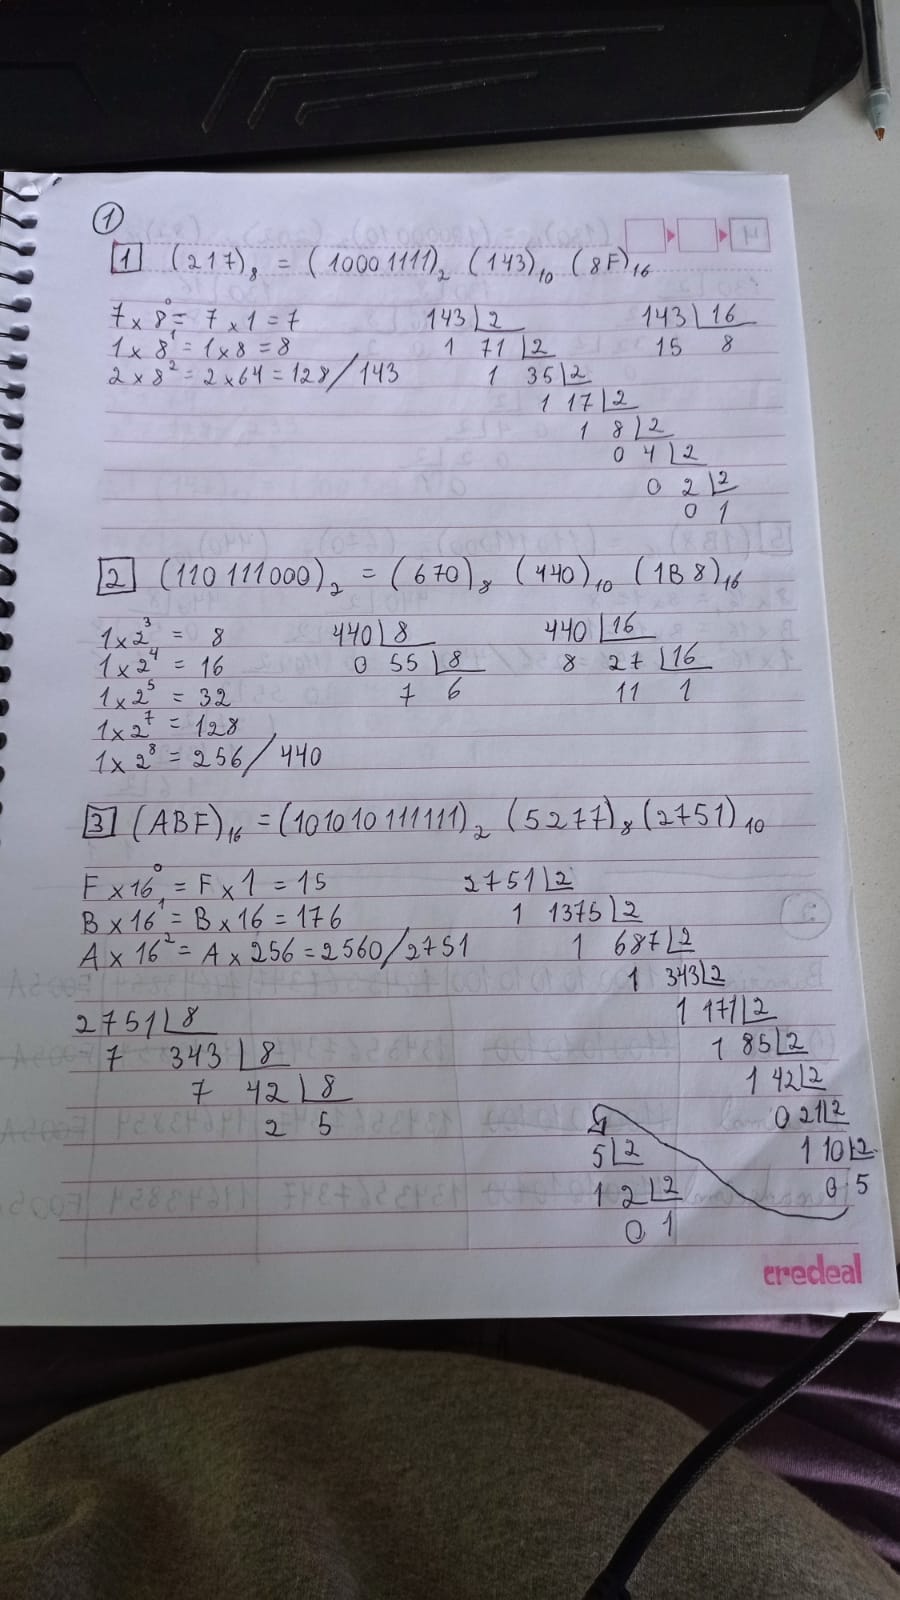 1
1 (217)₈ = (10001111)₂ (143)₁₀ (8F)₁₆
7 x 8⁰ = 7 x 1 = 7
1 x 8¹ = 1 x 8 = 8
2 x 8² = 2 x 64 = 128 / 143
143 | 2
1 71 | 2
1 35 | 2
1 17 | 2
1 8 | 2
0 4 | 2
0 2 | 2
0 1
143 | 16
15 8
2 (110 111000)₂ = (670)₈ (440)₁₀ (1B8)₁₆
1 x 2³ = 8
1 x 2⁴ = 16
1 x 2⁵ = 32
1 x 2⁷ = 128
1 x 2⁸ = 256 / 440
440 | 8
0 55 | 8
7 6
440 | 16
8 27 | 16
11 1
3 (ABF)₁₆ = (101010111111)₂ (5277)₈ (2751)₁₀
F x 16⁰ = F x 1 = 15
B x 16¹ = B x 16 = 176
A x 16² = A x 256 = 2560 / 2751
2751 | 8
7 343 | 8
7 42 | 8
2 5
2751 | 2
1 1375 | 2
1 687 | 2
1 343 | 2
1 171 | 2
1 85 | 2
1 42 | 2
0 21 | 2
1 10 | 2
0 5
5 | 2
1 2 | 2
0 1
credeal